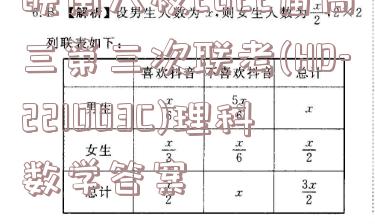 6. B 【解析】设男生人数为 x,则女生人数为 x/2, 2×2
列联表如下:
喜欢抖音 不喜欢抖音 总计
男生 5x/6 x
女生 x/3 x/6 x/2
总计 x 3x/2
三第三次联考(HD-
221003C)理科
数学答案